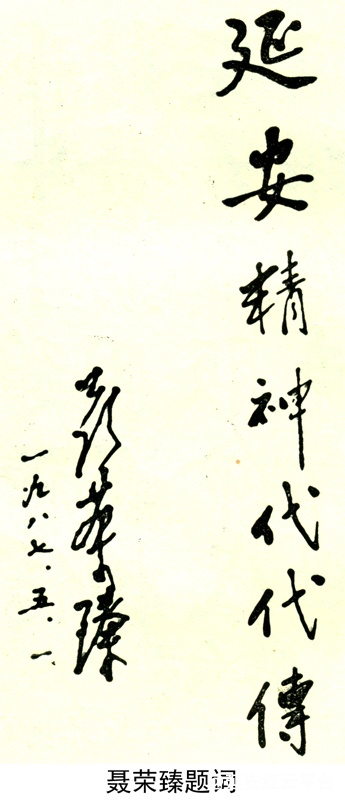 延安精神代代傳
聂荣臻
一九八七.五.一.
聂荣臻题词